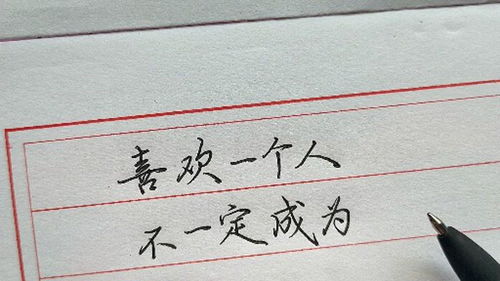 喜欢一个人
不一定成为